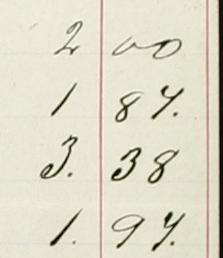 2 00
1 87.
3. 38
1. 97.